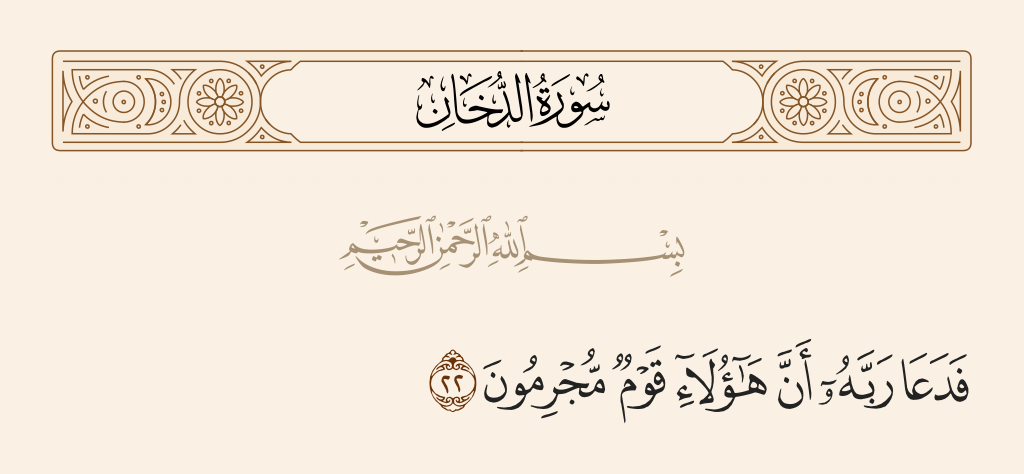 سُورَةُ الدُّخَانِ
بِسْمِ ٱللَّهِ ٱلرَّحْمَٰنِ ٱلرَّحِيمِ
فَدَعَا رَبَّهُۥٓ أَنَّ هَـٰٓؤُلَآءِ قَوْمٌ مُّجْرِمُونَ ٢٢